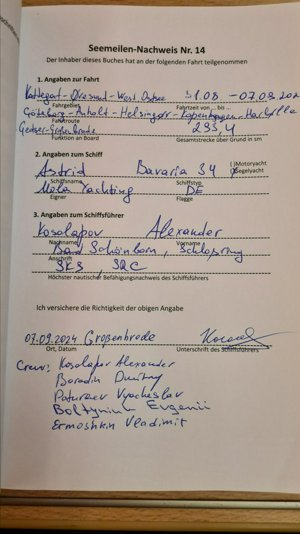 Seemeilen-Nachweis Nr. 14
Der Inhaber dieses Buches hat an der folgenden Fahrt teilgenommen
1. Angaben zur Fahrt
Kattegat-Øresund-West Ostsee 31.08 - 07.09.202
Fahrtgebiet Fahrtzeit von ... bis ...
Göteborg-Anholt-Helsingør-Kopenhagen-
Fahrtroute
Gedser-Großenbrode 293,4
Funktion an Board Gesamtstrecke über Grund in sm
2. Angaben zum Schiff
Astrid Bavaria 34 ( )Motoryacht
Schiffsname Schiffstyp (x)Segelyacht
Mola Yachting DE
Eigner Flagge
3. Angaben zum Schiffsführer
Kosolapov Alexander
Nachname Vorname
Bad Schönborn,
Anschrift
SKS, SRC
Höchster nautischer Befähigungsnachweis des Schiffsführers
Ich versichere die Richtigkeit der obigen Angabe
07.09.2024 Großenbrode
Ort, Datum Unterschrift des Schiffsführers
Crew: Kosolapov Alexander
Borodin Dmitry
Vyacheslav
Evgenii
Ermoshkin Vladimir